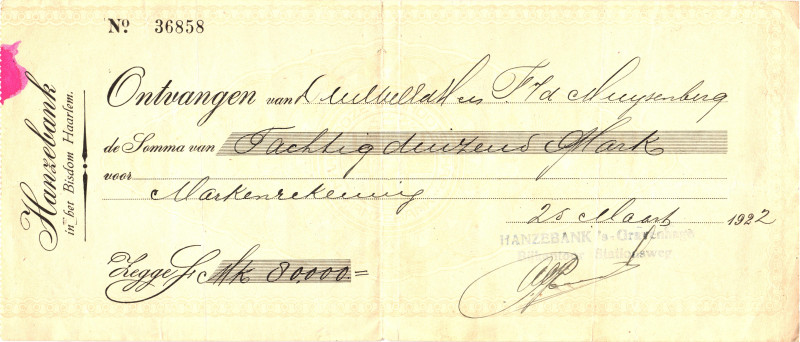 Hanzebank
in het Bisdom Haarlem.
No 36858
Ontvangen van F. v/d Muysenberg
de Somma van Tachtig duizend Mark
voor
Markenrekening
25 Maart 1922
HANZEBANK 's-Gravenhage
Bijkantoor Stationsweg
Zegge f Mk 80.000=